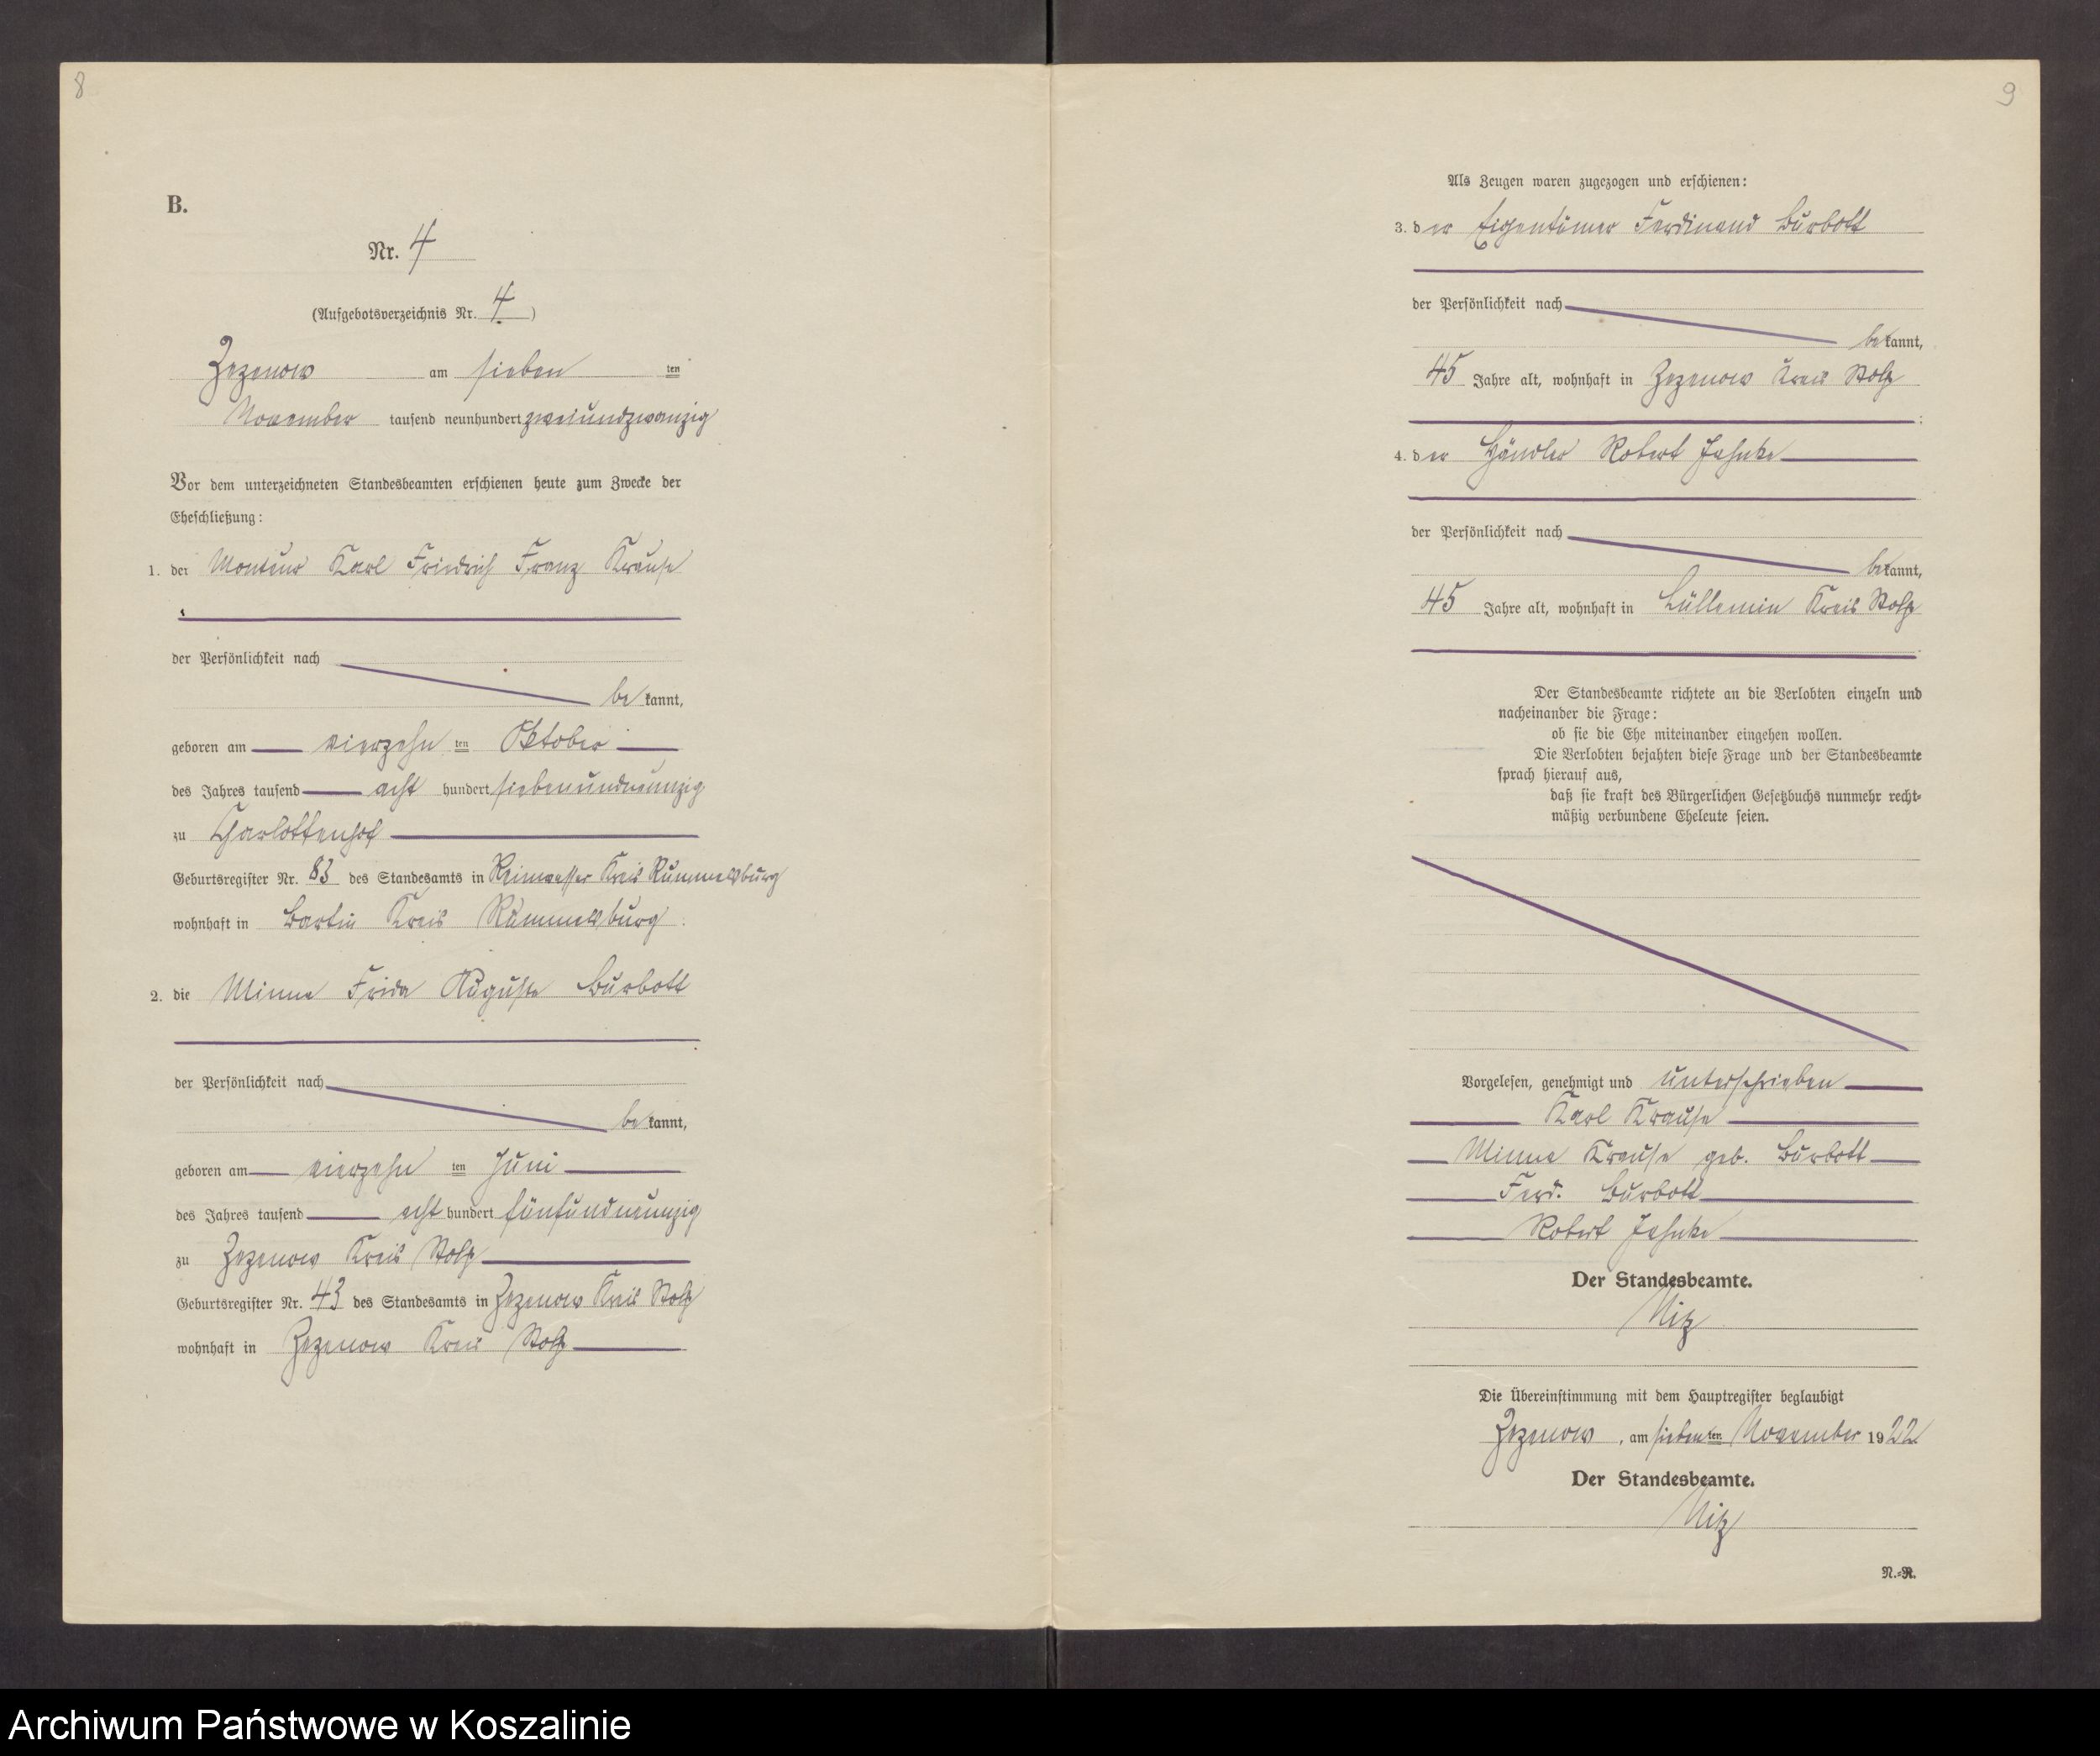 8
B.
Nr. 4
(Aufgebotsverzeichnis Nr. 4)
Zezenow am sieben ten
November tausend neunhundert zweiundzwanzig
Vor dem unterzeichneten Standesbeamten erschienen heute zum Zwecke der
Eheschließung:
1. der Monteur Karl Friedrich Franz Krause
der Persönlichkeit nach
bekannt,
geboren am vierzehn ten Oktober
des Jahres tausend acht hundert siebenundneunzig
zu Charlottenhof
Geburtsregister Nr. 83 des Standesamts in Reinwasser Kreis Rummelsburg
wohnhaft in Bartin Kreis Rummelsburg
2. die Minna Frida Auguste Burbott
der Persönlichkeit nach
bekannt,
geboren am vierzehn ten Juni
des Jahres tausend acht hundert fünfundneunzig
zu Zezenow Kreis Stolp
Geburtsregister Nr. 43 des Standesamts in Zezenow Kreis Stolp
wohnhaft in Zezenow Kreis Stolp
9
Als Zeugen waren zugezogen und erschienen:
3. der Eigentümer Ferdinand Burbott
der Persönlichkeit nach
bekannt,
45 Jahre alt, wohnhaft in Zezenow Kreis Stolp
;
4. der Händler Robert Jahnke
der Persönlichkeit nach
bekannt,
45 Jahre alt, wohnhaft in Lüllemin Kreis Stolp
Der Standesbeamte richtete an die Verlobten einzeln und
nacheinander die Frage:
ob sie die Ehe miteinander eingehen wollen.
Die Verlobten bejahten diese Frage und der Standesbeamte
sprach hierauf aus,
daß sie kraft des Bürgerlichen Gesetzbuchs nunmehr recht-
mäßig verbundene Eheleute seien.
Vorgelesen, genehmigt und unterschrieben
Karl Krause
Minna Krause geb. Burbott
Ferd. Burbott
Robert Jahnke
Der Standesbeamte.
Nitz
Die Übereinstimmung mit dem Hauptregister beglaubigt
Zezenow, am sieben ten November 1922
Der Standesbeamte.
Nitz
N.-R.
Archiwum Państwowe w Koszalinie